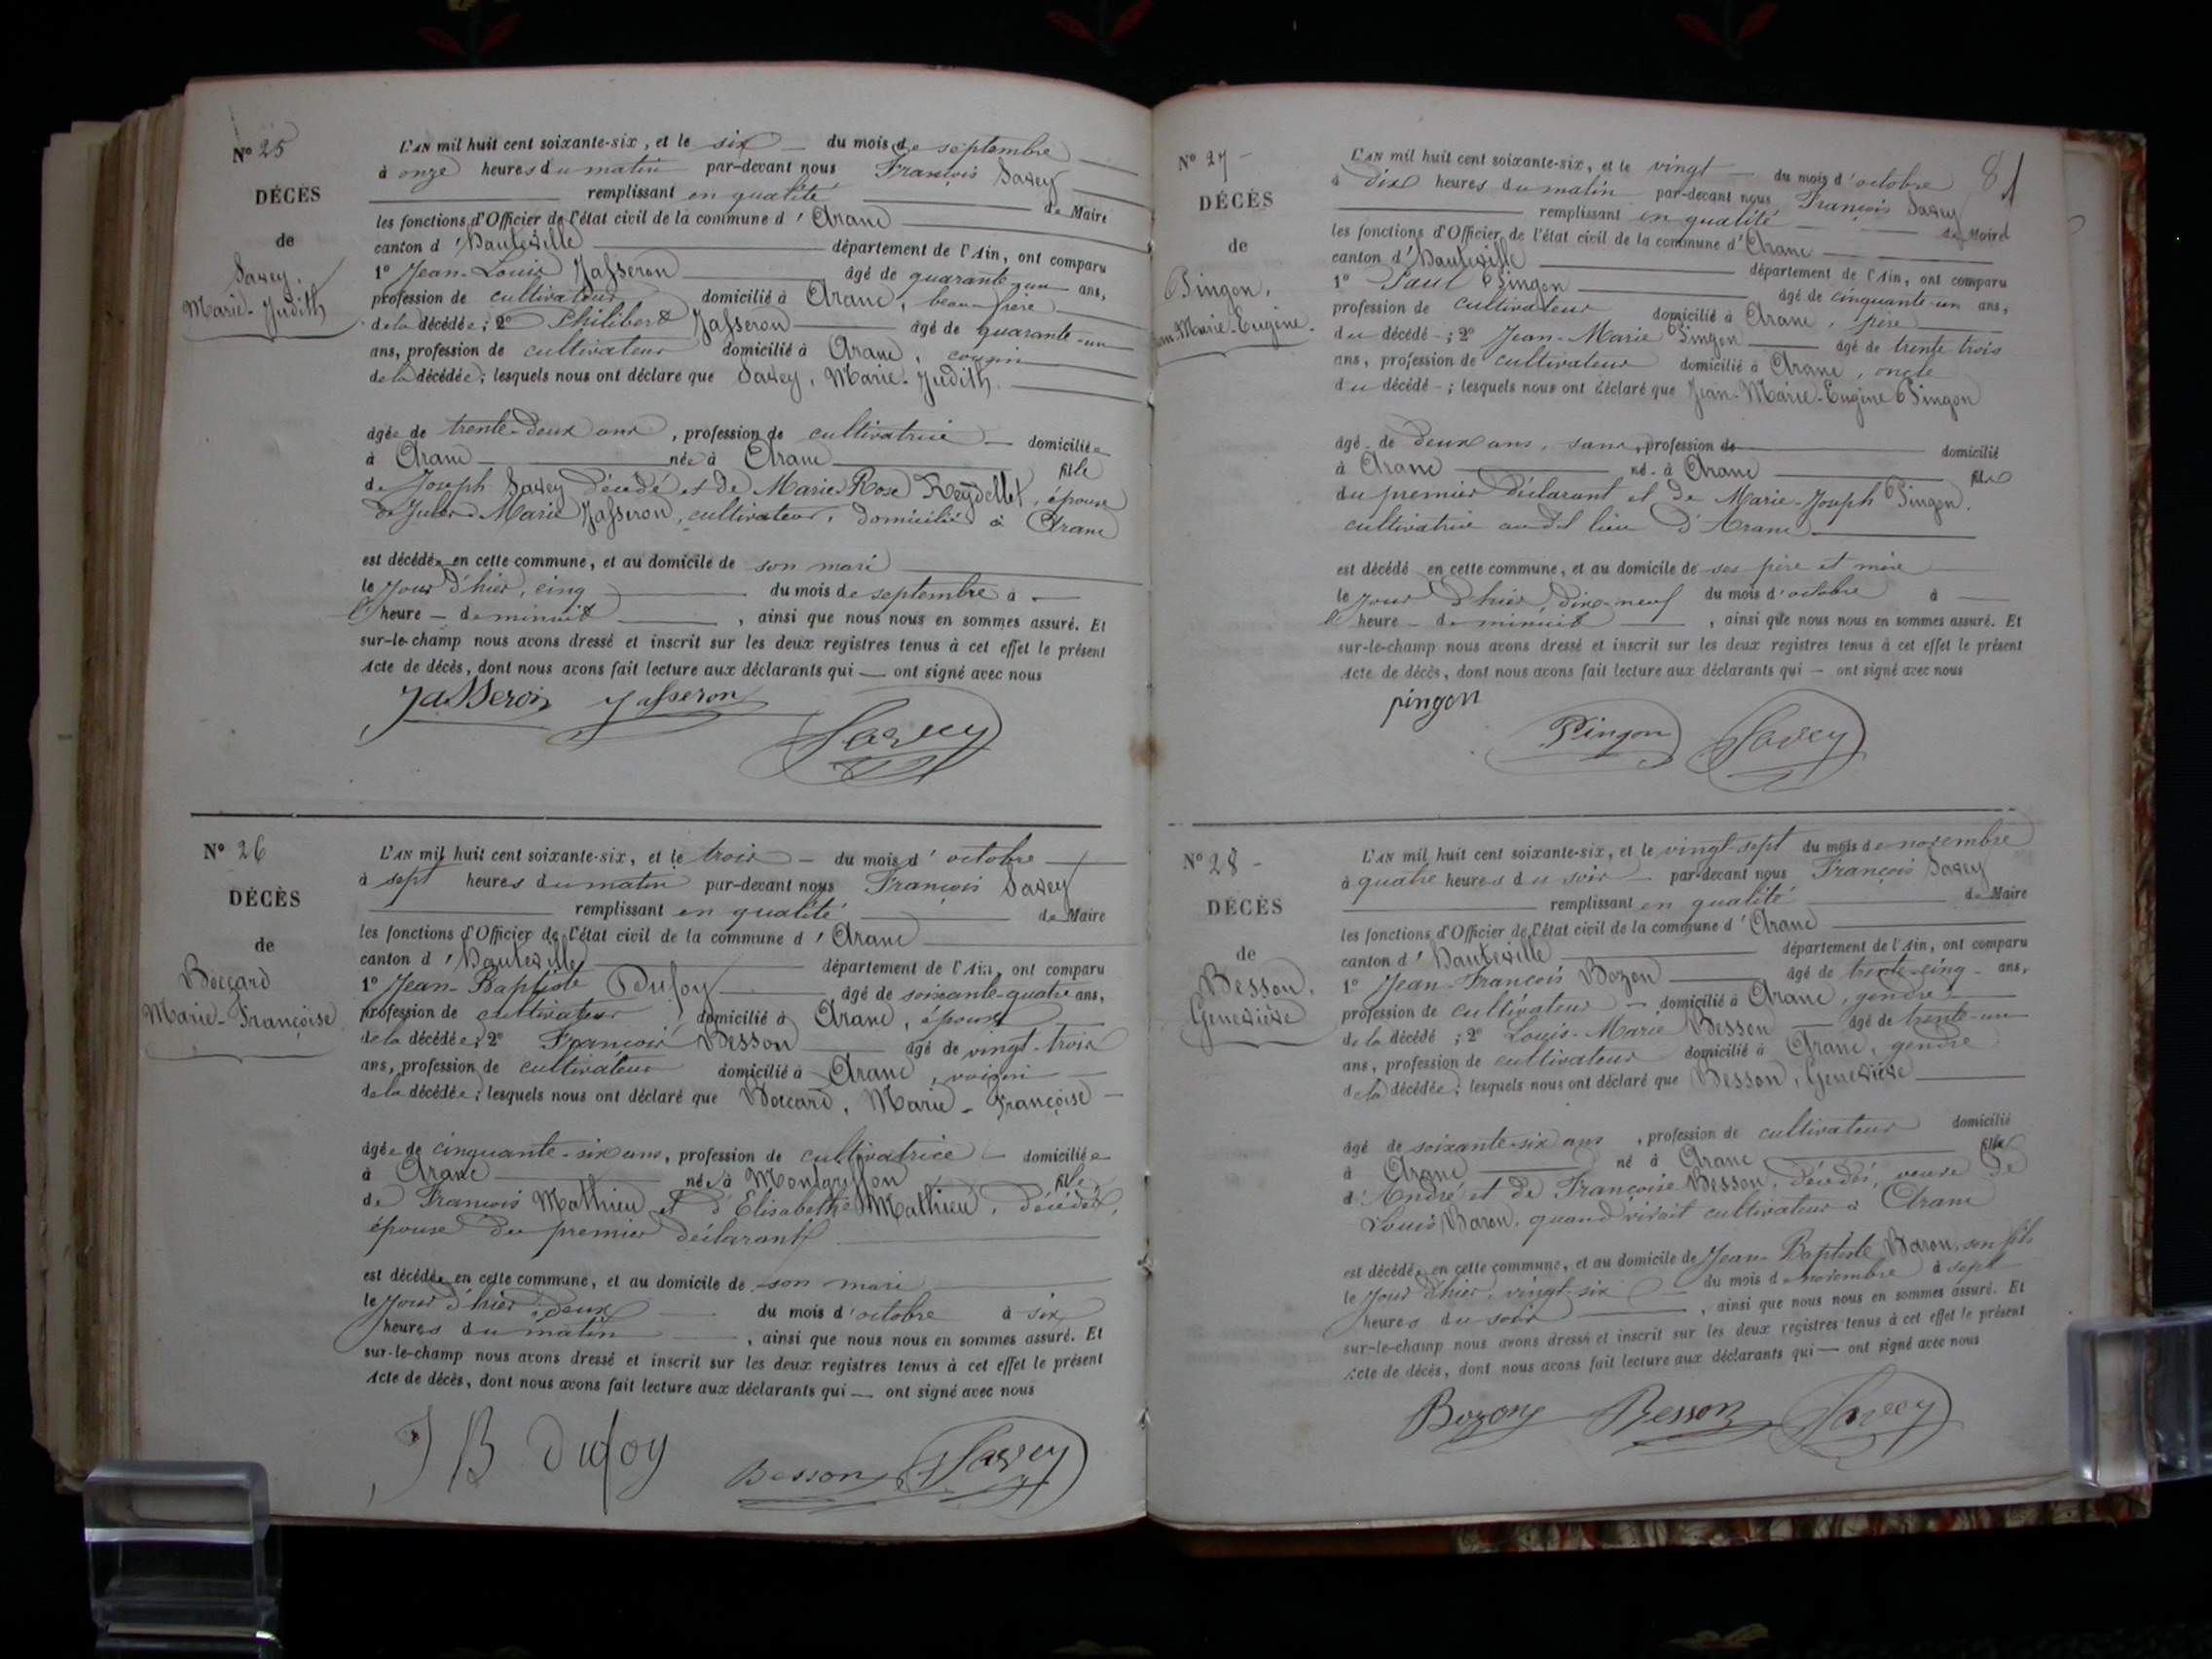 N° 25
DÉCÈS
de
Savey,
Marie-Judith
L'AN mil huit cent soixante-six, et le six du mois de septembre
à onze heures du matin par-devant nous François Savey
remplissant en qualité de Maire
les fonctions d'Officier de l'état civil de la commune d'Aranc
canton d'Hauteville département de l'Ain, ont comparu
1° Jean-Louis Jasseron âgé de quarante-un ans,
profession de cultivateur domicilié à Aranc, beau-frère
de la décédée; 2° Philibert Jasseron âgé de quarante-un
ans, profession de cultivateur domicilié à Aranc, cousin
de la décédée; lesquels nous ont déclaré que Savey, Marie-Judith,
âgée de trente-deux ans, profession de cultivatrice domiciliée
à Aranc née à Aranc fille
de Joseph Savey décédé et de Marie Rose Reydellet, épouse
de Jules-Marie Jasseron, cultivateur, domicilié à Aranc
est décédée en cette commune, et au domicile de son mari
le jour d'hier, cinq du mois de septembre à
l'heure de minuit, ainsi que nous nous en sommes assuré. Et
sur-le-champ nous avons dressé et inscrit sur les deux registres tenus à cet effet le présent
Acte de décès, dont nous avons fait lecture aux déclarants qui ont signé avec nous
Jasseron Jasseron
Savey
N° 26
DÉCÈS
de
Boccard
Marie-Françoise
L'AN mil huit cent soixante-six, et le trois du mois d'octobre
à sept heures du matin par-devant nous François Savey
remplissant en qualité de Maire
les fonctions d'Officier de l'état civil de la commune d'Aranc
canton d'Hauteville département de l'Ain, ont comparu
1° Jean-Baptiste Dufoy âgé de soixante-quatre ans,
profession de cultivateur domicilié à Aranc, époux
de la décédée; 2° François Besson âgé de vingt-trois
ans, profession de cultivateur domicilié à Aranc, voisin
de la décédée; lesquels nous ont déclaré que Boccard, Marie-Françoise
âgée de cinquante-six ans, profession de cultivatrice domiciliée
à Aranc née à Montgriffon fille
de François Mathieu et d'Elisabeth Mathieu, décédés,
épouse du premier déclarant
est décédée en cette commune, et au domicile de son mari
le jour d'hier, deux du mois d'octobre à six
heures du matin, ainsi que nous nous en sommes assuré. Et
sur-le-champ nous avons dressé et inscrit sur les deux registres tenus à cet effet le présent
Acte de décès, dont nous avons fait lecture aux déclarants qui ont signé avec nous
J B Dufoy Besson Savey
81
N° 27
DÉCÈS
de
Pingon,
Marie-Eugène.
L'AN mil huit cent soixante-six, et le vingt du mois d'octobre
à dix heures du matin par-devant nous François Savey
remplissant en qualité de Maire
les fonctions d'Officier de l'état civil de la commune d'Aranc
canton d'Hauteville département de l'Ain, ont comparu
1° Paul Pingon âgé de cinquante-un ans,
profession de cultivateur domicilié à Aranc, père
du décédé; 2° Jean-Marie Pingon âgé de trente trois
ans, profession de cultivateur domicilié à Aranc, oncle
du décédé; lesquels nous ont déclaré que Jean-Marie-Eugène Pingon
âgé de deux ans, sans profession de domicilié
à Aranc né à Aranc fils
du premier déclarant et de Marie-Joseph Pingon,
cultivatrice au dit lieu d'Aranc
est décédé en cette commune, et au domicile de ses père et mère
le jour d'hier dix-neuf du mois d'octobre à
l'heure de minuit, ainsi que nous nous en sommes assuré. Et
sur-le-champ nous avons dressé et inscrit sur les deux registres tenus à cet effet le présent
Acte de décès, dont nous avons fait lecture aux déclarants qui ont signé avec nous
pingon
Pingon Savey
N° 28
DÉCÈS
de
Besson,
Geneviève
L'AN mil huit cent soixante-six, et le vingt-sept du mois de novembre
à quatre heures du soir par-devant nous François Savey
remplissant en qualité de Maire
les fonctions d'Officier de l'état civil de la commune d'Aranc
canton d'Hauteville département de l'Ain, ont comparu
1° Jean-François Bozon âgé de trente-cinq ans,
profession de cultivateur domicilié à Aranc, gendre
de la décédé; 2° Louis-Marie Besson âgé de trente-un
ans, profession de cultivateur domicilié à Aranc, gendre
de la décédée; lesquels nous ont déclaré que Besson, Geneviève
âgé de soixante-six ans, profession de cultivateur domicilié
à Aranc né à Aranc fille
d'André et de Françoise Besson, décédés, veuve de
Louis Baron, quand vivait cultivateur à Aranc
est décédée en cette commune, et au domicile de Jean-Baptiste Baron, son fils
le jour d'hier, vingt-six du mois de novembre à sept
heures du soir, ainsi que nous nous en sommes assuré. Et
sur-le-champ nous avons dressé et inscrit sur les deux registres tenus à cet effet le présent
Acte de décès, dont nous avons fait lecture aux déclarants qui ont signé avec nous
Bozon Besson Savey